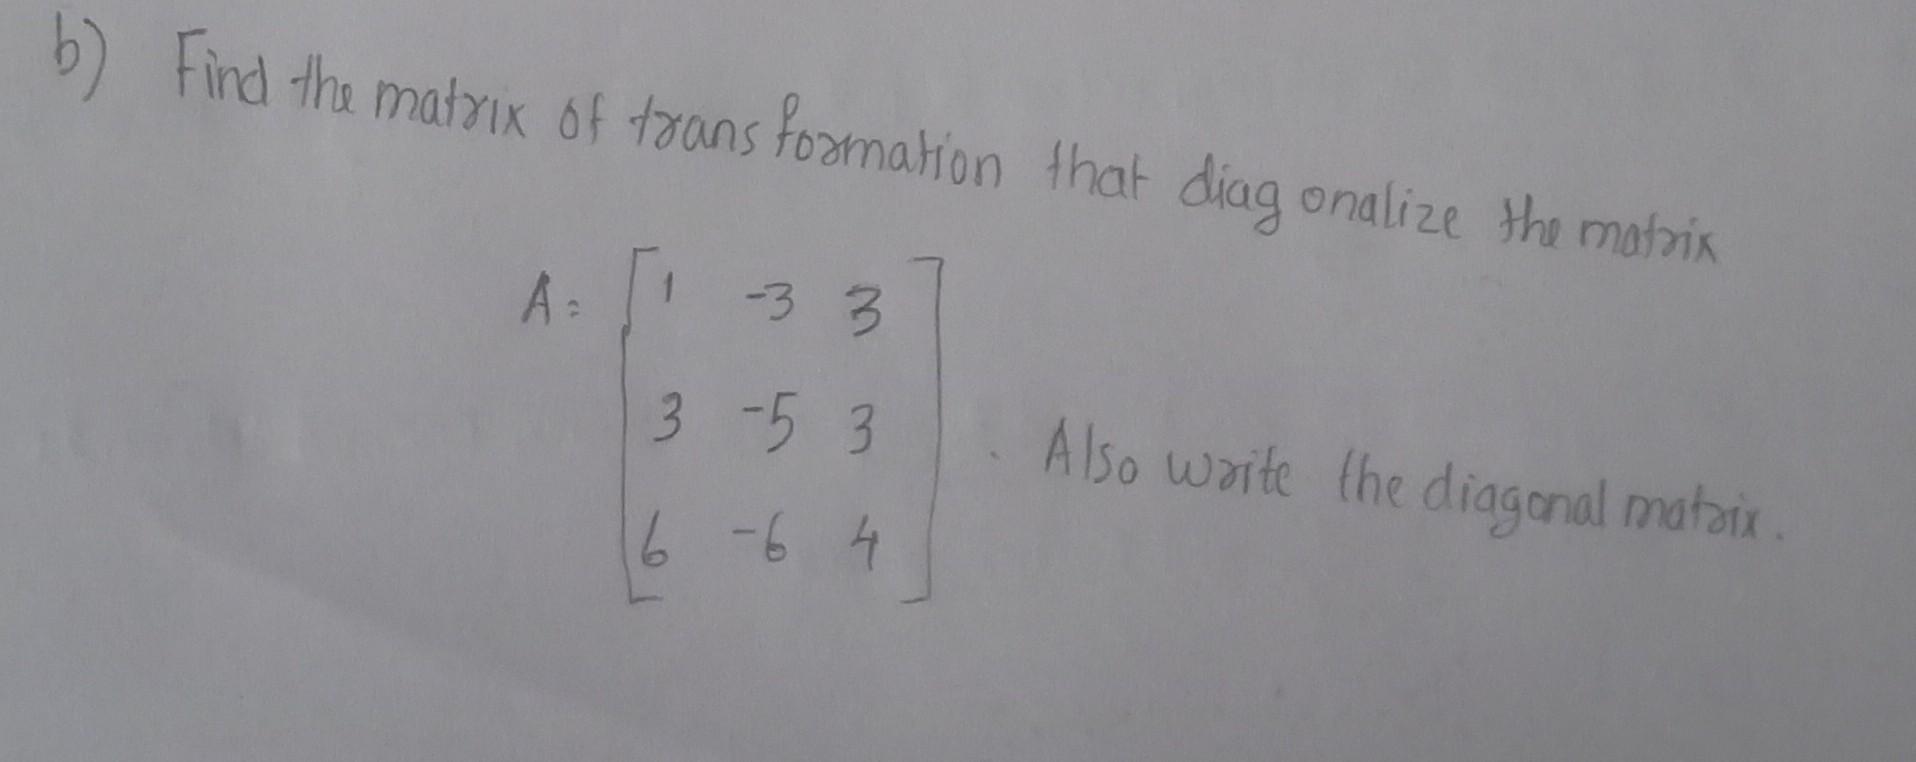 b) Find the matrix of transformation that diagonalize the matrix
A = [ 1 -3 3
3 -5 3 . Also write the diagonal matrix.
6 -6 4 ]